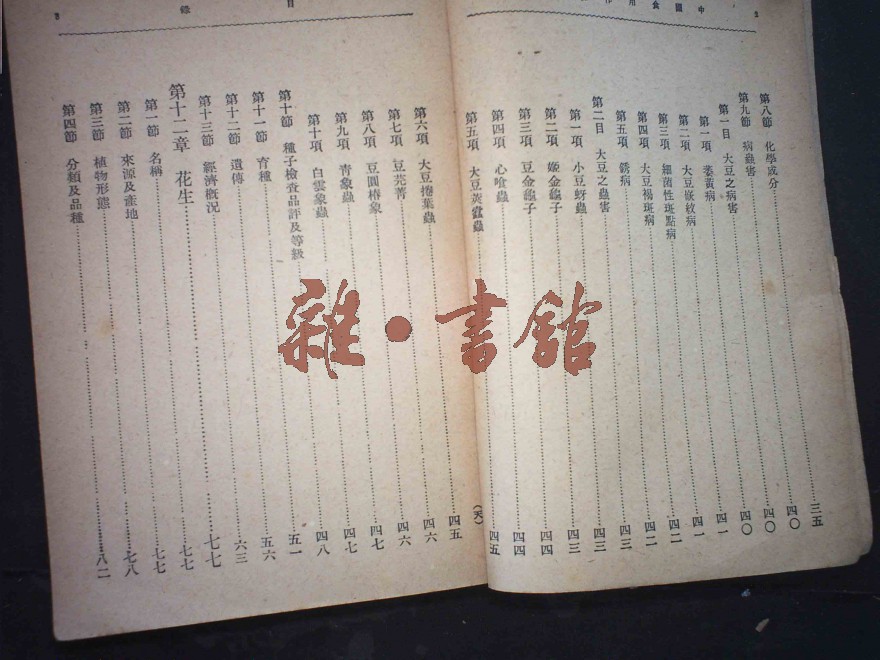 中國食用作
第八節 化學成分……三五
第九節 病蟲害……四〇
第一目 大豆之病害……四〇
第一項 萎黃病……四〇
第二項 大豆嵌紋病……四一
第三項 細菌性斑點病……四一
第四項 大豆褐斑病……四二
第五項 銹病……四二
第二目 大豆之蟲害……四三
第一項 小豆蚜蟲……四三
第二項 姬金龜子……四三
第三項 豆金龜子……四四
第四項 心喰蟲……四四
第五項 大豆莢蠹蟲……四五
目錄
第六項 大豆捲葉蟲……四五
第七項 豆芫菁……四六
第八項 豆圓椿象……四六
第九項 青象蟲……四七
第十項 白雲象蟲……四七
第十節 種子檢查品評及等級……四八
第十一節 育種……五一
第十二節 遺傳……五六
第十三節 經濟概況……六三
第十二章 花生……七七
第一節 名稱……七七
第二節 來源及產地……七七
第三節 植物形態……七八
第四節 分類及品種……八二
雜·書館